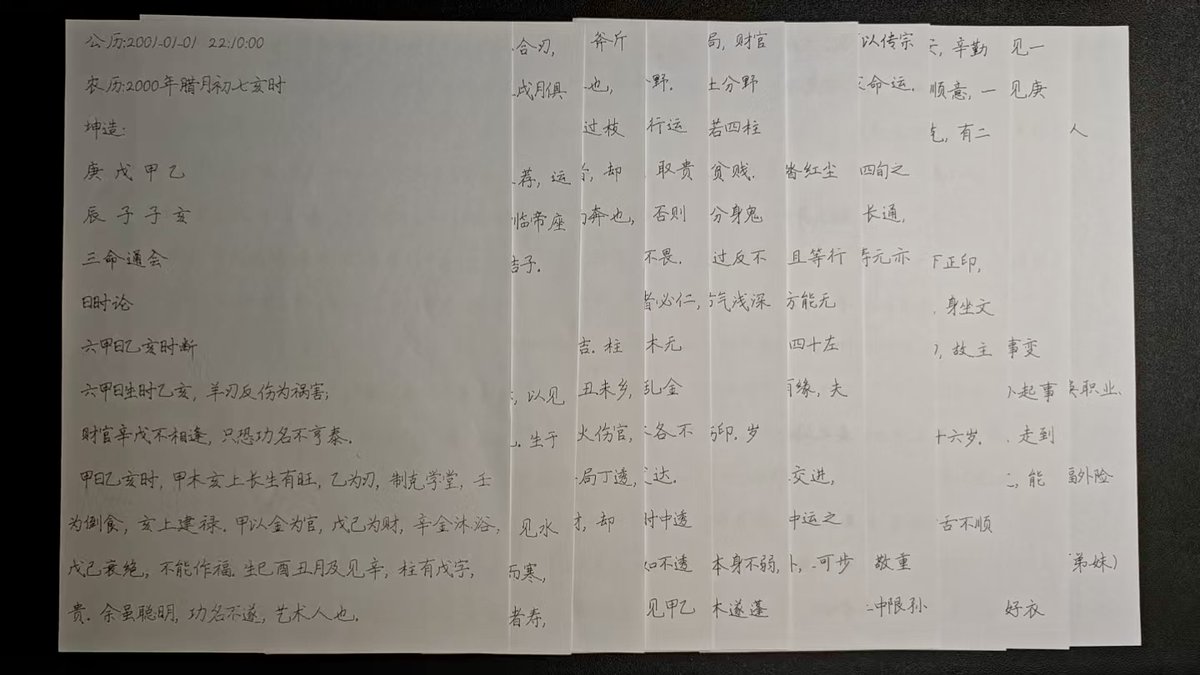 公历:2001-01-01 22:10:00
农历:2000年腊月初七亥时
坤造:
庚 戊 甲 乙
辰 子 子 亥
三命通会
日时论
六甲日乙亥时断
六甲日生时乙亥,羊刃反伤为祸害;
财官辛戊不相逢,只恐功名不亨泰.
甲日乙亥时,甲木亥上长生有旺,乙为刃,制克学堂,壬
为倒食,亥上建禄.甲以金为官,戊己为财,辛金沐浴,
戊己衰绝,不能作福.生巳酉丑月及见辛,柱有戊字,
贵.余虽聪明,功名不遂,艺术人也.
合刃,
戌月俱
荐,运
临帝座
子.
以见
生于
见水
而寒,
者寿,
斧斤
也,
过枝
却
奔也,
吉.柱
丑未乡,
火伤官,
局丁透,
却
野.
行运
取贵
否则
不畏.
者必仁,
木元
乱金
各不
达.
时中透
如不透
见甲乙
局,财官
土分野
若四柱
贫贱.
分身鬼
过反不
气浅深
印.岁
本身不弱,
木遂蓬
红尘
且等行
方能无
四十左
缘,夫
交进,
中运之
可步
以传宗
命运.
四旬之
长通,
元亦
敬重
中限孙
辛勤
顺意,一
有二
正印,
身坐文
故主
十六岁.
舌不顺
见一
见庚
事变
起事
走到
能
好衣
人
职业.
外险
弟妹)